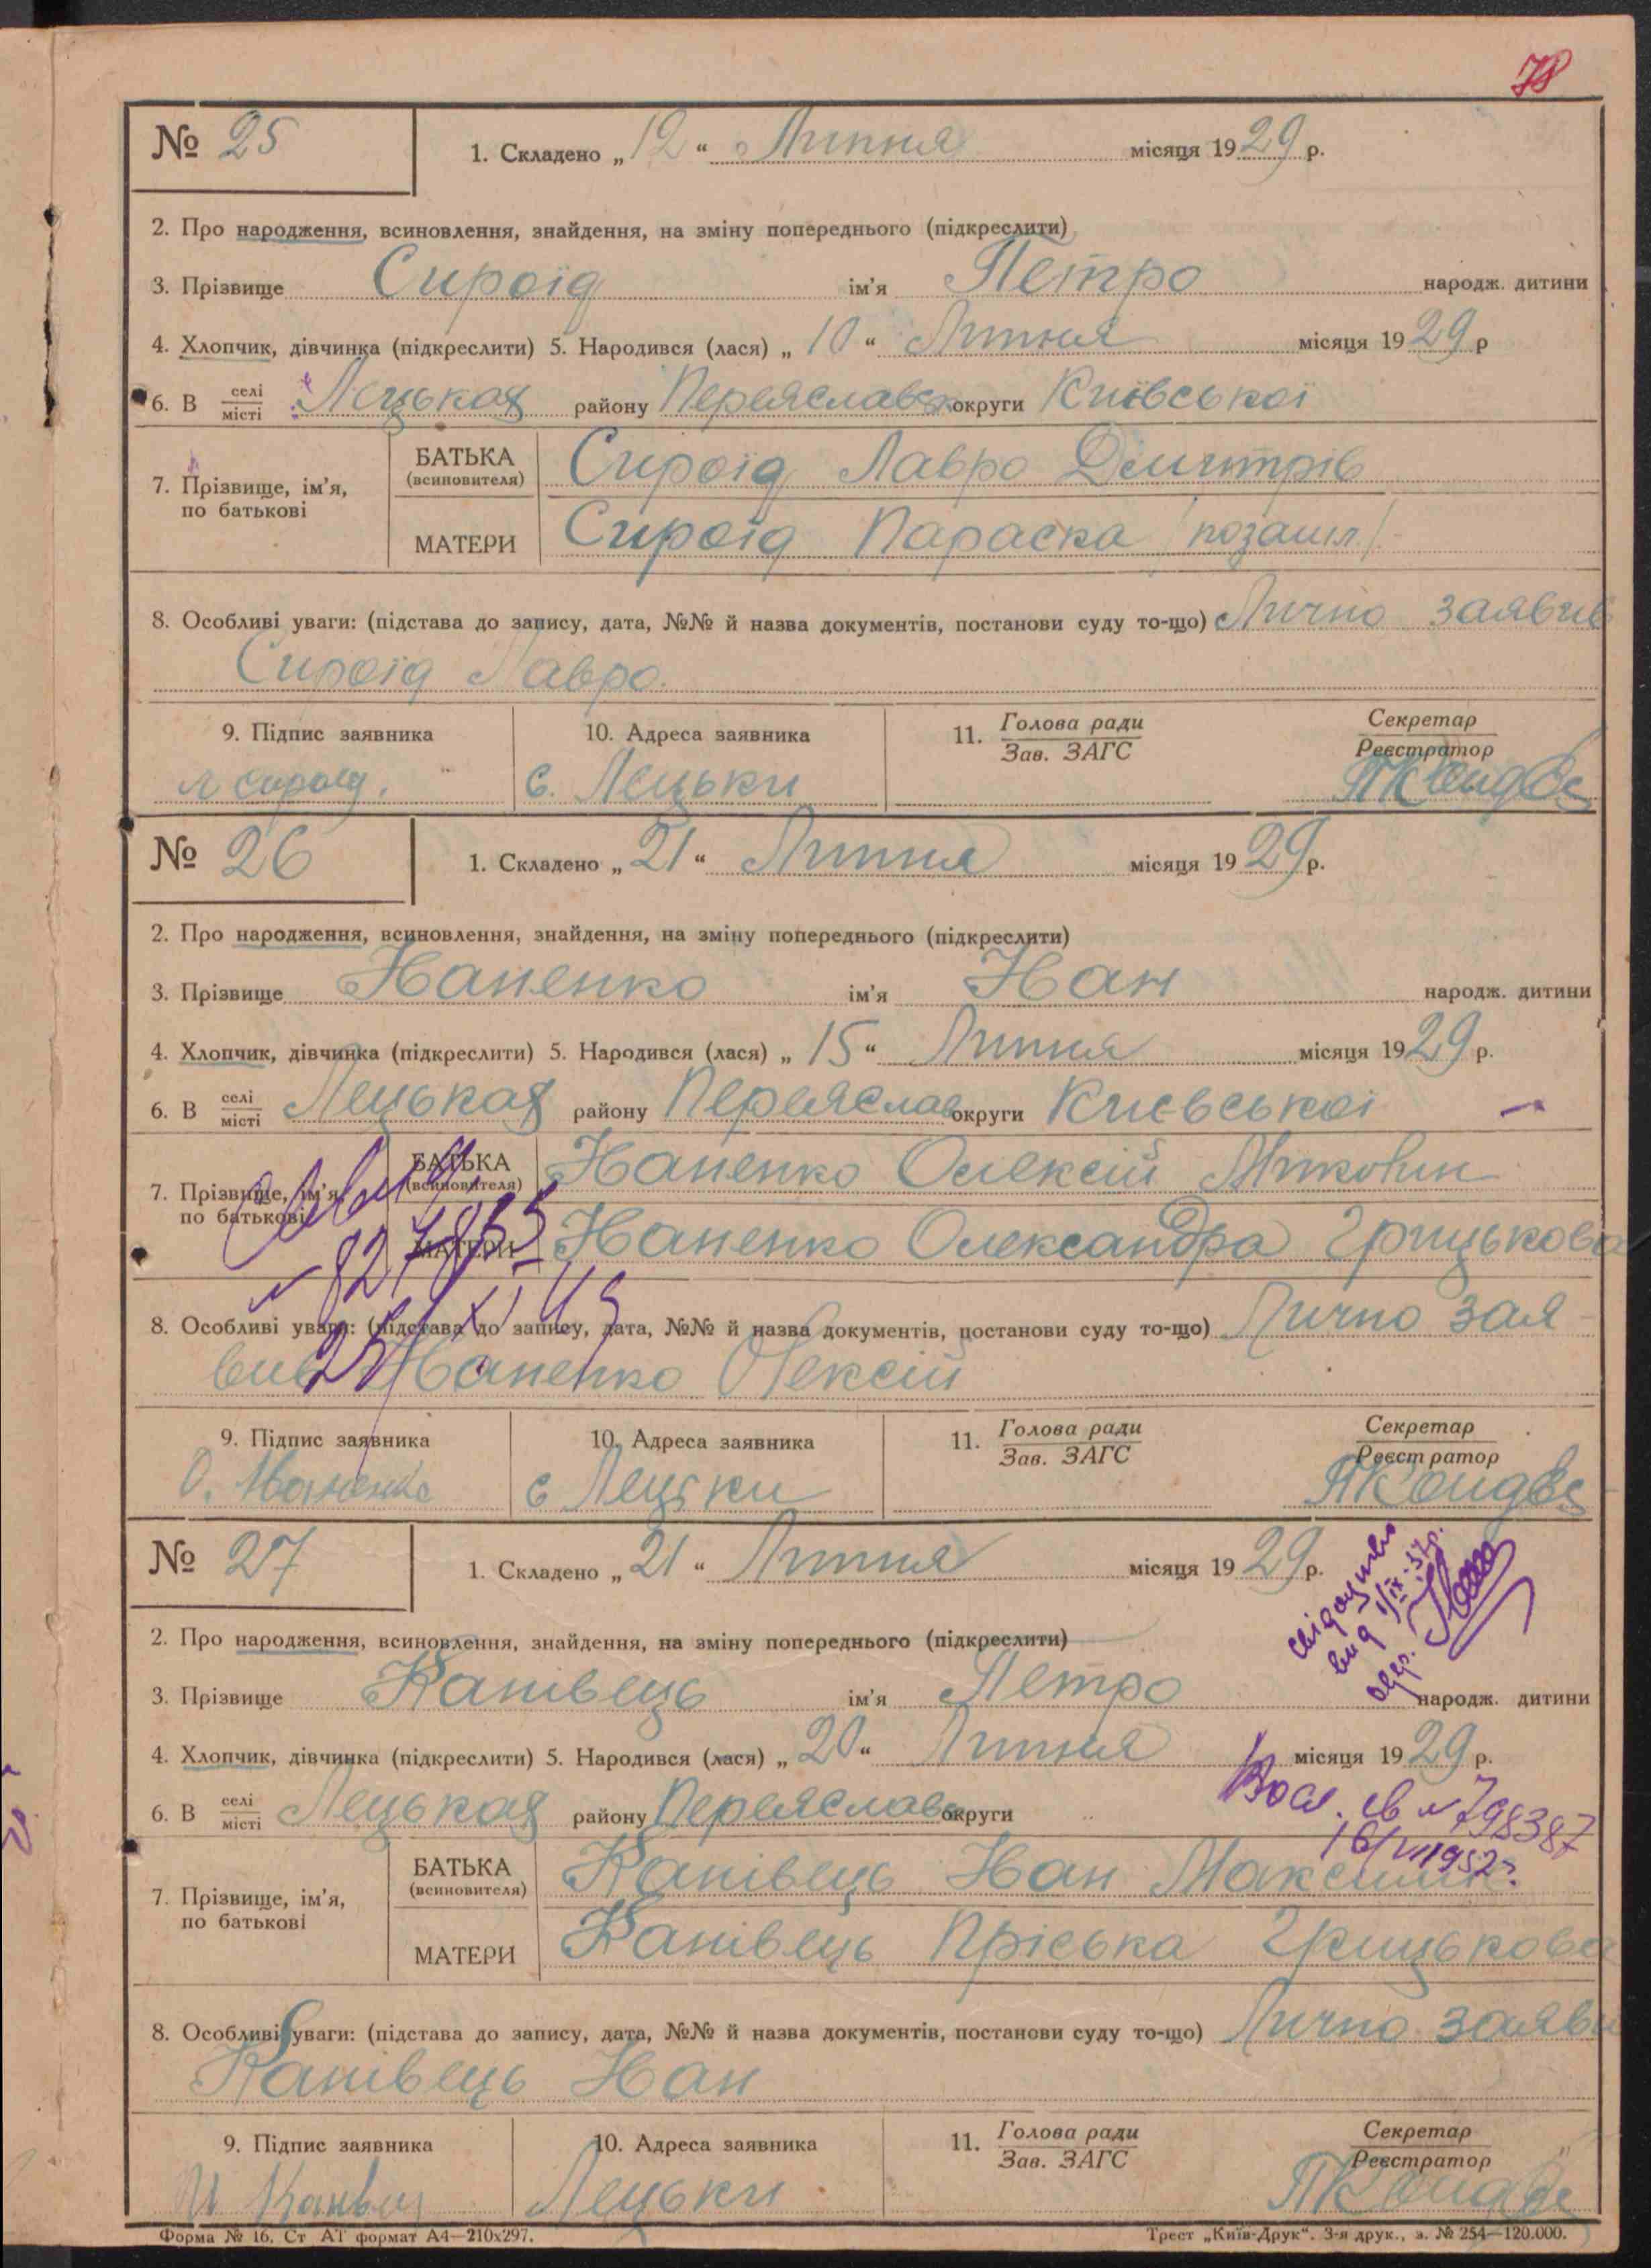 78
№ 25 1. Складено „12“ Липня місяця 1929 р.
2. Про народження, всиновлення, знайдення, на зміну попереднього (підкреслити)
3. Прізвище Сироїд ім'я Петро народж. дитини
4. Хлопчик, дівчинка (підкреслити) 5. Народився (лася) „10“ Липня місяця 1929 р
6. В селі/місті Лецьках району Переяславськ округи Київської
7. Прізвище, ім'я, по батькові
БАТЬКА (всиновителя) Сироїд Лавро Дмитрів
МАТЕРИ Сироїд Параска /позашл./
8. Особливі уваги: (підстава до запису, дата, №№ й назва документів, постанови суду то-що) Лично заявив
Сироїд Лавро.
9. Підпис заявника 10. Адреса заявника 11. Голова ради/Зав. ЗАГС Секретар/Реєстратор
Л Сироїд. с. Лецьки
№ 26 1. Складено „21“ Липня місяця 1929 р.
2. Про народження, всиновлення, знайдення, на зміну попереднього (підкреслити)
3. Прізвище Іваненко ім'я Іван народж. дитини
4. Хлопчик, дівчинка (підкреслити) 5. Народився (лася) „15“ Липня місяця 1929 р.
6. В селі/місті Лецьках району Переяслав округи Киевської
7. Прізвище, ім'я, по батькові
БАТЬКА (всиновителя) Іваненко Олексій
МАТЕРИ Іваненко Олександра Грицькова
8. Особливі уваги: (підстава до запису, дата, №№ й назва документів, постанови суду то-що) Лично зая
вив Іваненко Олексій
9. Підпис заявника 10. Адреса заявника 11. Голова ради/Зав. ЗАГС Секретар/Реєстратор
О. Іваненко с Лецьки
№ 27 1. Складено „21“ Липня місяця 1929 р.
свідоцтво
вид 1/ІХ-57р.
2. Про народження, всиновлення, знайдення, на зміну попереднього (підкреслити)
3. Прізвище Канівець ім'я Петро народж. дитини
4. Хлопчик, дівчинка (підкреслити) 5. Народився (лася) „20“ Липня місяця 1929 р.
6. В селі/місті Лецьках району Переяслав округи
св № 798387
16/VII 1952г.
7. Прізвище, ім'я, по батькові
БАТЬКА (всиновителя) Канівець Іван Максимів
МАТЕРИ Канівець Пріська Грицькова
8. Особливі уваги: (підстава до запису, дата, №№ й назва документів, постанови суду то-що) Лично заяви
в Канівець Іван
9. Підпис заявника 10. Адреса заявника 11. Голова ради/Зав. ЗАГС Секретар/Реєстратор
Лецьки
Форма № 16. Ст АТ формат А4—210х297. Трест „Київ-Друк“. 3-я друк., з. № 254—120.000.